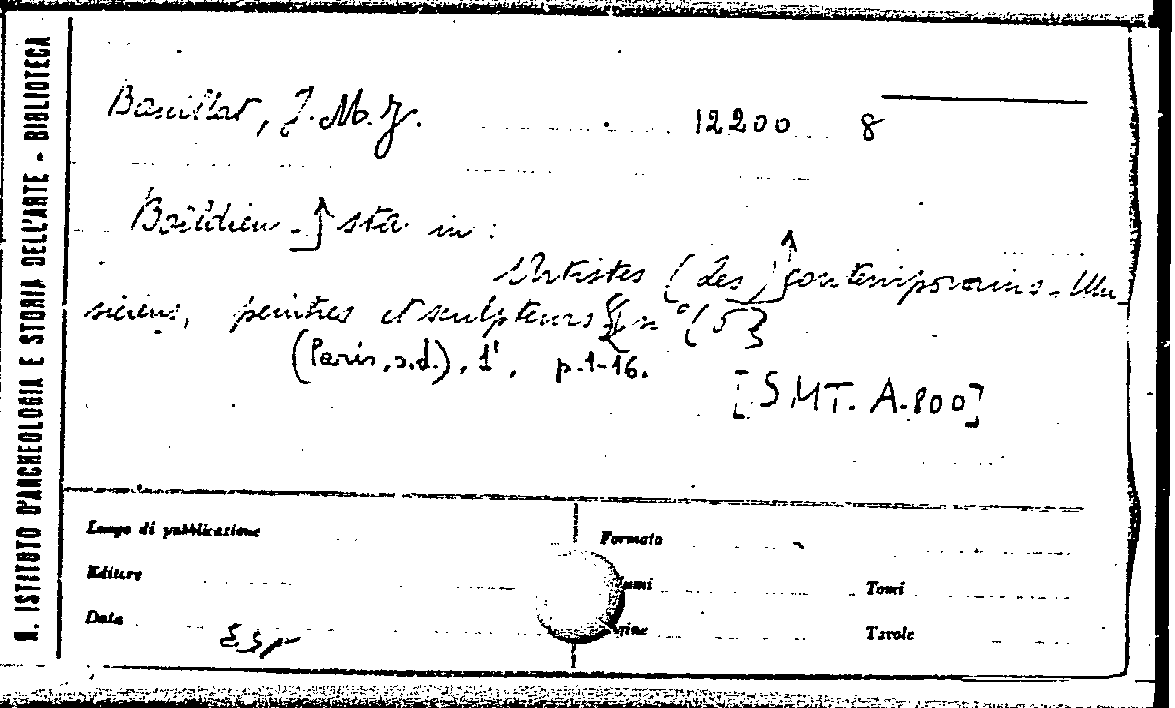 R. ISTITUTO D'ARCHEOLOGIA E STORIA DELL'ARTE - BIBLIOTECA
J. M. J. 12200 8
Boïldieu - sta in :
Artistes (des) contemporains - Mu-
siciens, peintres et sculpteurs n° (5)
(Paris, s.d.), 1', p. 1-16.
[S. MT. A. 800]
Luogo di pubblicazione
Formato
Editore
umi
Tomi
Data
gine
Tavole